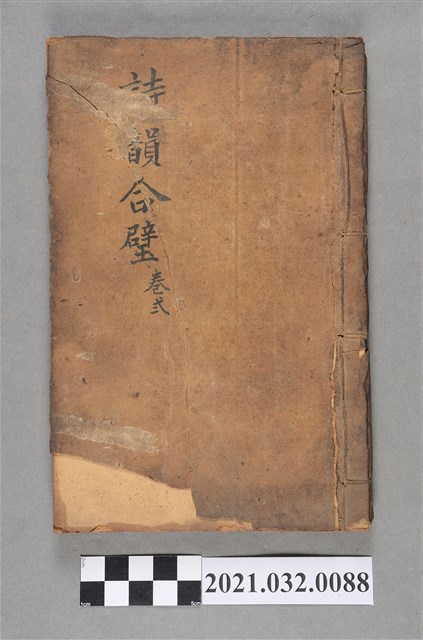 詩韻合璧
卷弍
2021.032.0088
5cm